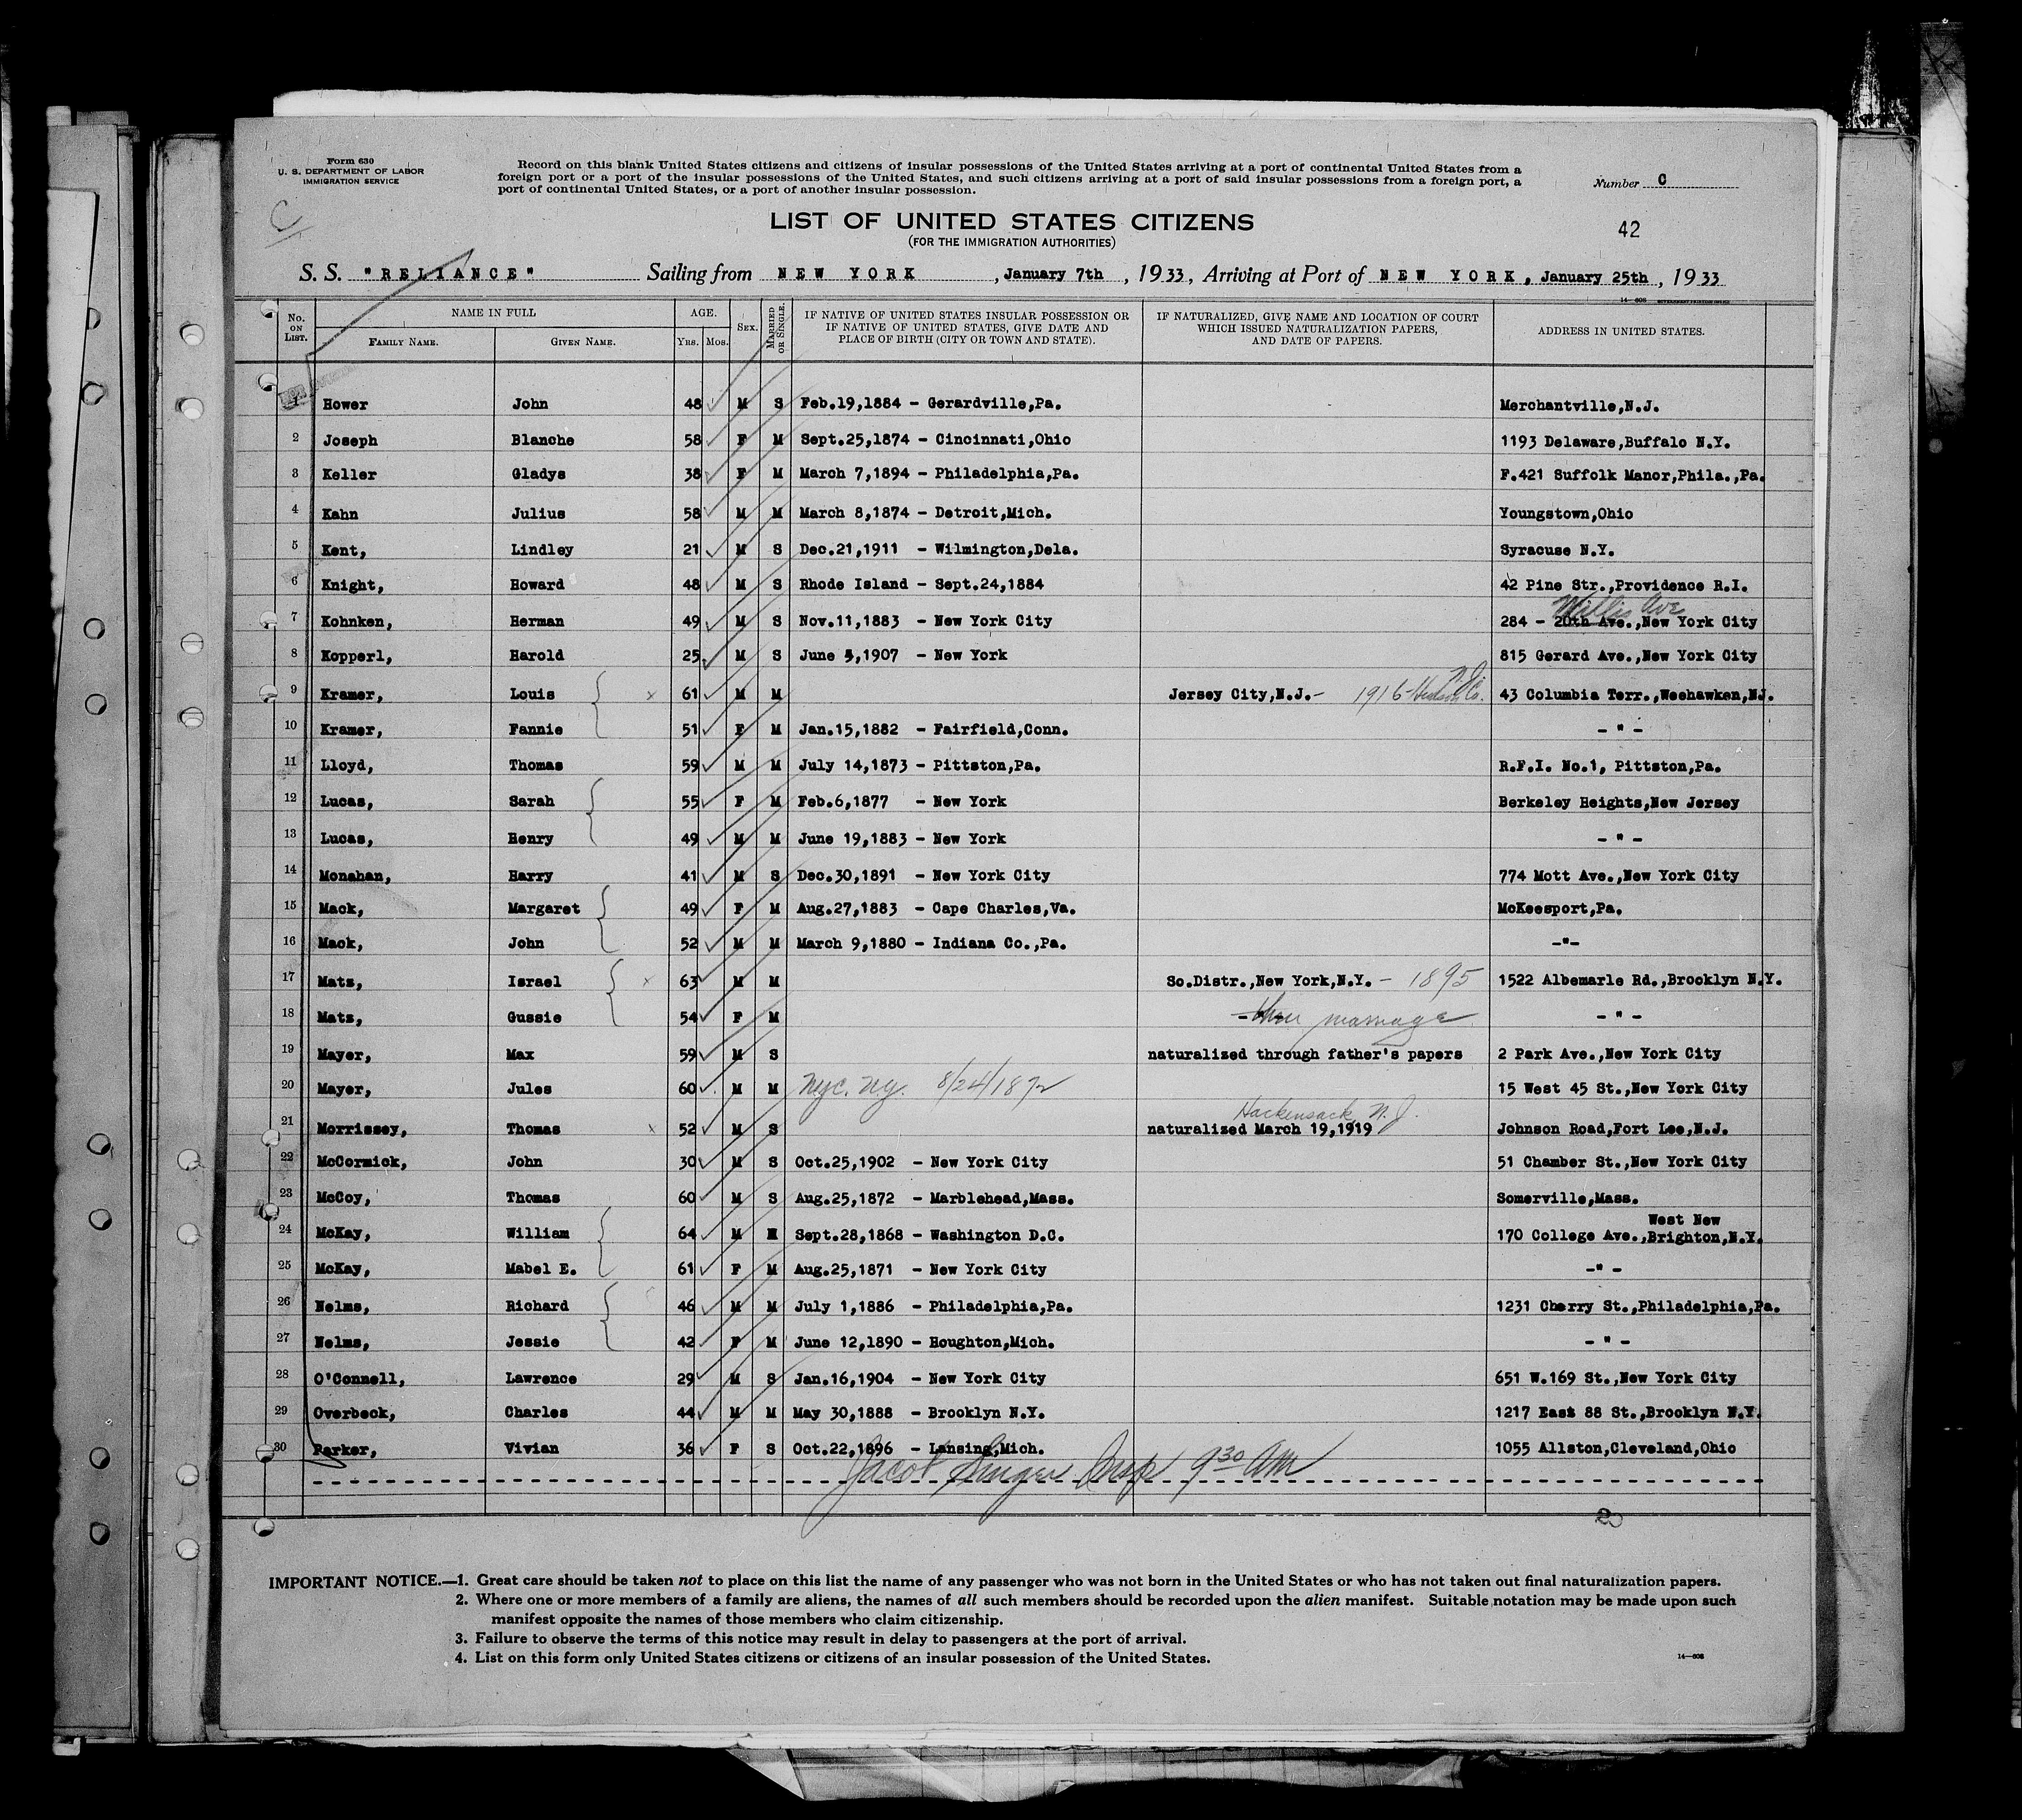 Form 630
U. S. DEPARTMENT OF LABOR
IMMIGRATION SERVICE
Record on this blank United States citizens and citizens of insular possessions of the United States arriving at a port of continental United States from a
foreign port or a port of the insular possessions of the United States, and such citizens arriving at a port of said insular possessions from a foreign port, a
port of continental United States, or a port of another insular possession.
Number C
C
LIST OF UNITED STATES CITIZENS
42
(FOR THE IMMIGRATION AUTHORITIES)
S. S. "RELIANCE" Sailing from NEW YORK, January 7th, 1933, Arriving at Port of NEW YORK, January 25th, 1933
No. ON LIST. NAME IN FULL FAMILY NAME. GIVEN NAME. AGE. YRS. MOS. SEX. MARRIED OR SINGLE. IF NATIVE OF UNITED STATES INSULAR POSSESSION OR IF NATIVE OF UNITED STATES, GIVE DATE AND PLACE OF BIRTH (CITY OR TOWN AND STATE). IF NATURALIZED, GIVE NAME AND LOCATION OF COURT WHICH ISSUED NATURALIZATION PAPERS, AND DATE OF PAPERS. ADDRESS IN UNITED STATES.
1 Hower John 48 M S Feb.19,1884 - Gerardville,Pa. Merchantville,N.J.
2 Joseph Blanche 58 F M Sept.25,1874 - Cincinnati,Ohio 1193 Delaware,Buffalo N.Y.
3 Keller Gladys 38 F M March 7,1894 - Philadelphia,Pa. F.421 Suffolk Manor,Phila.,Pa.
4 Kahn Julius 58 M M March 8,1874 - Detroit,Mich. Youngstown,Ohio
5 Kent, Lindley 21 M S Dec.21,1911 - Wilmington,Dela. Syracuse N.Y.
6 Knight, Howard 48 M S Rhode Island - Sept.24,1884 42 Pine Str.,Providence R.I.
Willis Ave
7 Kohnken, Herman 49 M S Nov.11,1883 - New York City 284 - 20th Ave.,New York City
8 Kopperl, Harold 25 M S June 4,1907 - New York 815 Gerard Ave.,New York City
9 Kramer, Louis x 61 M M Jersey City,N.J.- 1916-Hudson Co. N.J. 43 Columbia Terr.,Weehawken,NJ.
10 Kramer, Fannie 51 F M Jan.15,1882 - Fairfield,Conn. - " -
11 Lloyd, Thomas 59 M M July 14,1873 - Pittston,Pa. R.F.I. No.1, Pittston,Pa.
12 Lucas, Sarah 55 F M Feb.6,1877 - New York Berkeley Heights,New Jersey
13 Lucas, Henry 49 M M June 19,1883 - New York - " -
14 Monahan, Harry 41 M S Dec.30,1891 - New York City 774 Mott Ave.,New York City
15 Mack, Margaret 49 F M Aug.27,1883 - Cape Charles,Va. McKeesport,Pa.
16 Mack, John 52 M M March 9,1880 - Indiana Co.,Pa. -"-
17 Matz, Israel x 63 M M So.Distr.,New York,N.Y. - 1895 1522 Albemarle Rd.,Brooklyn N.Y.
18 Matz, Gussie 54 F M - " - thru marriage - " -
19 Mayer, Max 59 M S naturalized through father's papers 2 Park Ave.,New York City
20 Mayer, Jules 60 M M Nyc. N.y. 8/24/1872 15 West 45 St.,New York City
Hackensack, N.J.
21 Morrissey, Thomas x 52 M S naturalized March 19,1919 Johnson Road,Fort Lee,N.J.
22 McCormick, John 30 M S Oct.25,1902 - New York City 51 Chamber St.,New York City
23 McCoy, Thomas 60 M S Aug.25,1872 - Marblehead,Mass. Somerville,Mass.
West New
24 McKay, William 64 M M Sept.28,1868 - Washington D.C. 170 College Ave.,Brighton,N.Y.
25 McKay, Mabel E. 61 F M Aug.25,1871 - New York City -" -
26 Nelms, Richard 46 M M July 1,1886 - Philadelphia,Pa. 1231 Cherry St.,Philadelphia,Pa.
27 Nelms, Jessie 42 F M June 12,1890 - Houghton,Mich. - " -
28 O'Connell, Lawrence 29 M S Jan.16,1904 - New York City 651 W.169 St.,New York City
29 Overbeck, Charles 44 M M May 30,1888 - Brooklyn N.Y. 1217 East 88 St.,Brooklyn N.Y.
30 Parker, Vivian 36 F S Oct.22,1896 - Lansing,Mich. 1055 Allston,Cleveland,Ohio
Jacob Singer Insp 9 30 AM
2
IMPORTANT NOTICE.—1. Great care should be taken not to place on this list the name of any passenger who was not born in the United States or who has not taken out final naturalization papers.
2. Where one or more members of a family are aliens, the names of all such members should be recorded upon the alien manifest. Suitable notation may be made upon such
manifest opposite the names of those members who claim citizenship.
3. Failure to observe the terms of this notice may result in delay to passengers at the port of arrival.
4. List on this form only United States citizens or citizens of an insular possession of the United States.
14—608